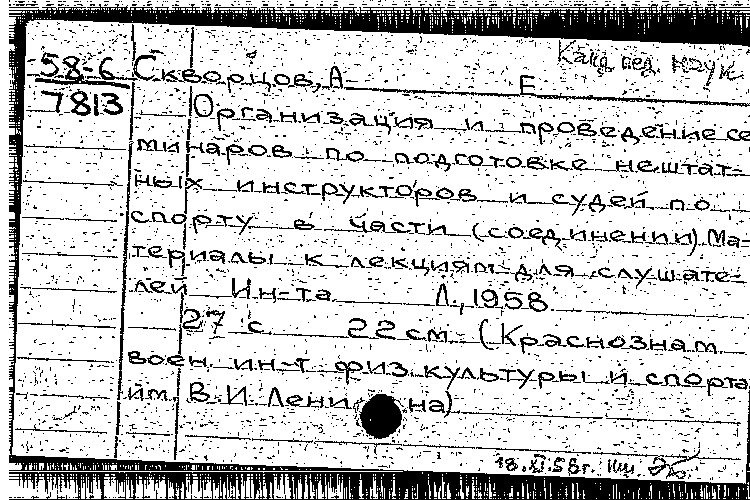 Канд. пед. наук
58-6 Скворцов, А Е
7813 Организация и проведение се
минаров по подготовке нештат-
ных инструкторов и судей по
спорту в части (соединении) Ма-
териалы к лекциям для слушате-
лей Ин-та Л., 1958
27 с. 22 см (Краснознам
воен ин-т физ. культуры и спорта
им. В.И. Ленина)
18.XI.58г.